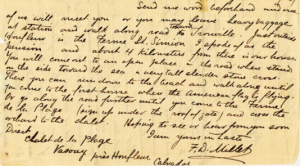 Send me word beforehand and one
of us will meet you or you may leave heavy baggage
at station and walk along road to
is the Ferme St. Simeon
pension and about 4 kilometers from there is our house
You will come to an open place on the road where stand
on the side toward the sea a very tall slender stone cross.
There you turn down to the beach and walk along until
you come to the first house where the
or along the road further until you come to the Ferme
de la Plage (sign up under the roof of gate) and cross the
orchard to the chalet. Hoping to see or hear from you soon
I am yours in haste
F. D. Millet
Direct
Chalet de la Plage
Vasouy près Honfleur
Calvados